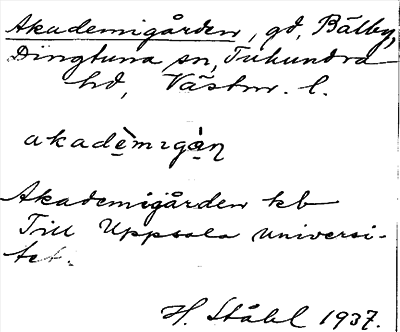 Akademigården, gd, Bälby,
Dingtuna sn, Tuhundra
hd, Västm. l.
akadèmigàn
Akademigården kb
Till Uppsala universi-
tet.
H. Ståhl 1937.